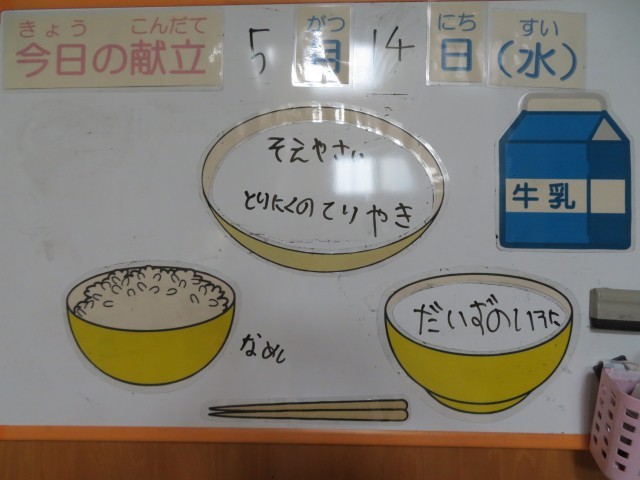 きょう こんだて
今日の献立
5 がつ 14 にち すい
月 日 (水)
そえやさい
とりにくのてりやき
牛乳
なめし
だいずのいそに